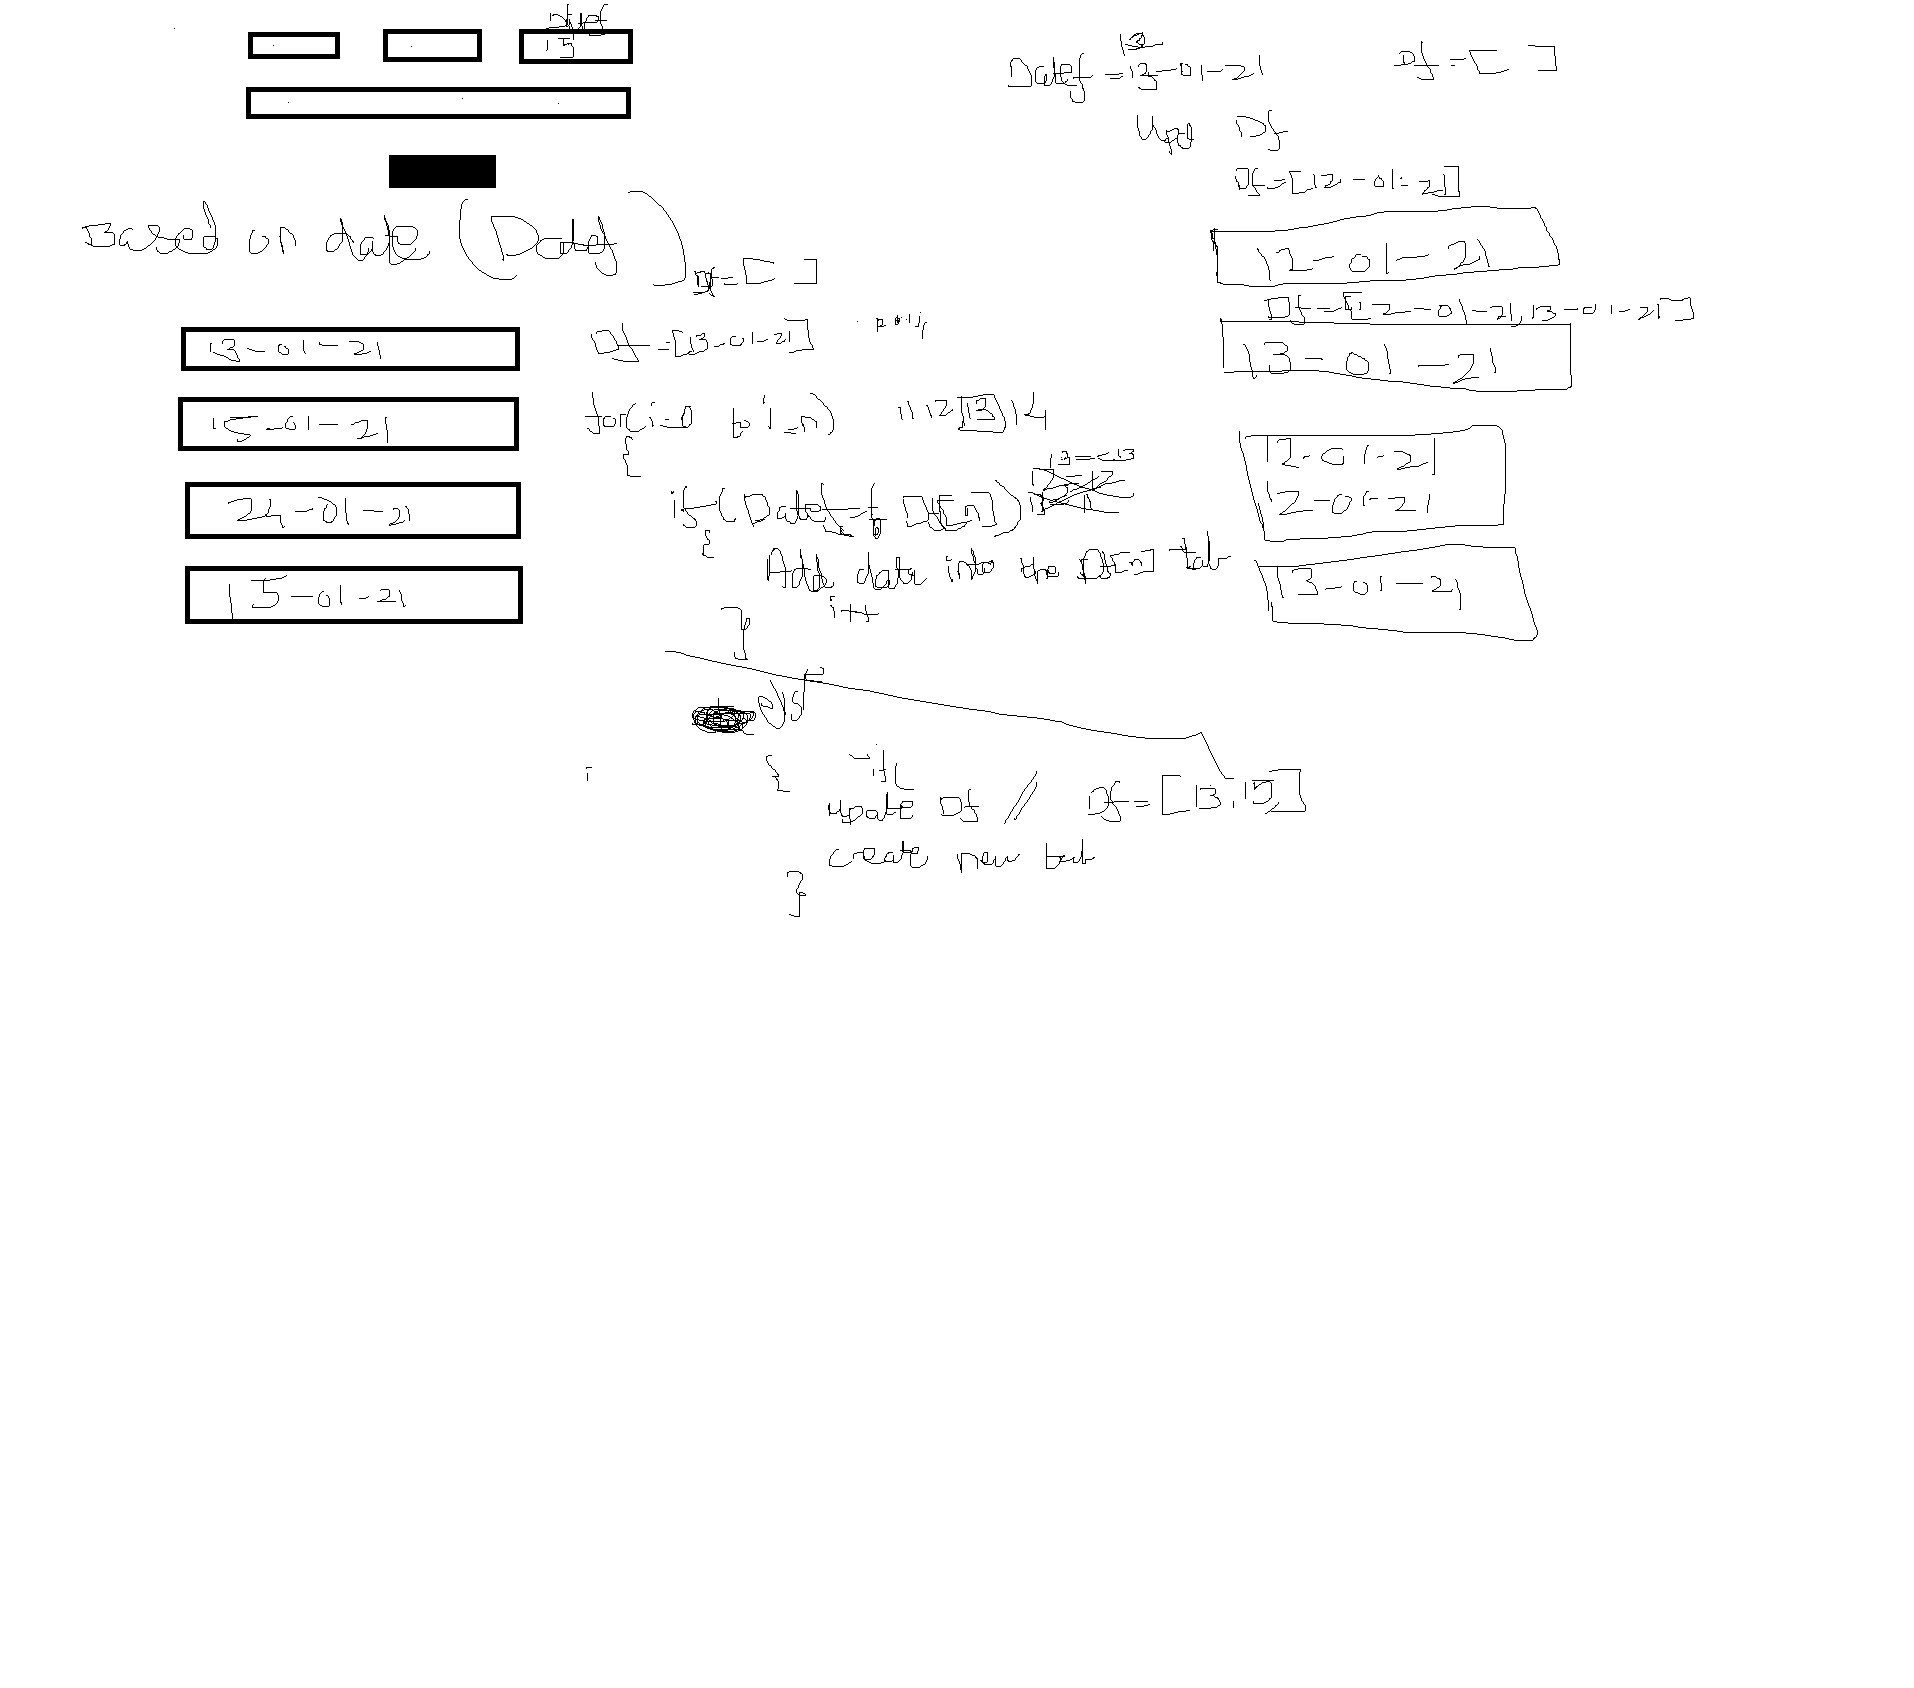 15
Based on date (Datef)
Df=[ ]
13-01-21
Df=[13-01-21]
15-01-21
for(i=0 to i=n) 11 12 13 14
{
24-01-21
if (Datef = Df[n])
{
Add data into the Df[n] tab
i++
15-01-21
}
{
if(
update Df // Df=[13,15]
create new tab
}
Datef = 13-01-21
Df=[ ]
Df
Df=[12-01-21]
12-01-21
Df=[12-01-21,13-01-21]
13-01-21
12-01-21
12-01-21
13-01-21